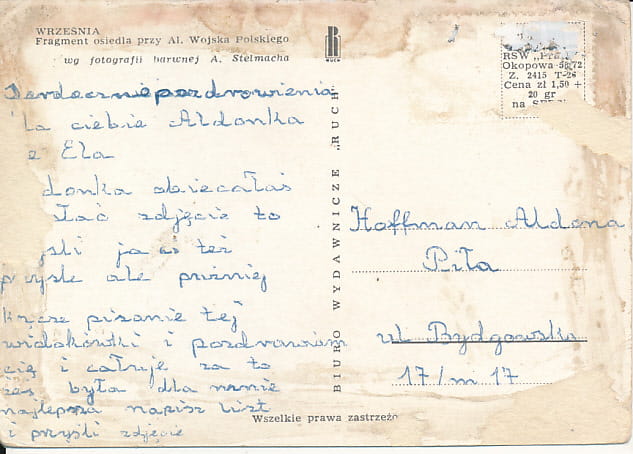 WRZEŚNIA
Fragment osiedla przy Al. Wojska Polskiego
wg fotografii barwnej A. Stelmacha
RUCH
RSW „Pra
Okopowa 58/72
Z. 2415 T-26
Cena zł 1,50 +
20 gr
na
Serdeczne pozdrowienia
la ciebie Aldonka
e Ela
donka obiecałaś
słać zdjęcie to
yśli ja ci też
przyśle ale puźniej
kącze pisanie tej
widokówki i pozdrawiam
cię i całuje za to
żeś była dla mnie
najlepsza napisz list
i przyśli zdjęcie
BIURO WYDAWNICZE „RUCH
Hoffman Aldona
Piła
ul Bydgowska
17/m 17
Wszelkie prawa zastrzeżo